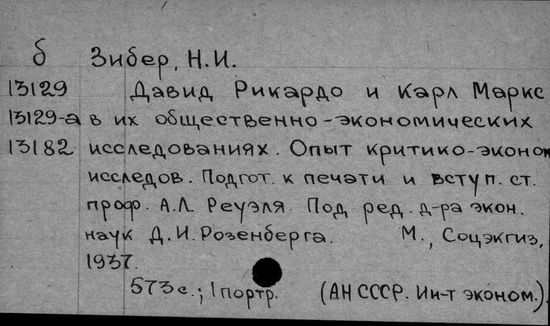 б Зибер, Н.И.
13129 Давид Рикардо и Карл Маркс
13129-а в их общественно-экономических
13182 исследованиях. Опыт критико-эконом
исследов. Подгот. к печати и вступ. ст.
проф. А.Л. Реуэля. Под ред. д-ра экон.
наук Д.И. Розенберга. М., Соцэкгиз,
1937.
573 с.; 1 портр. (АН СССР. Ин-т эконом.).